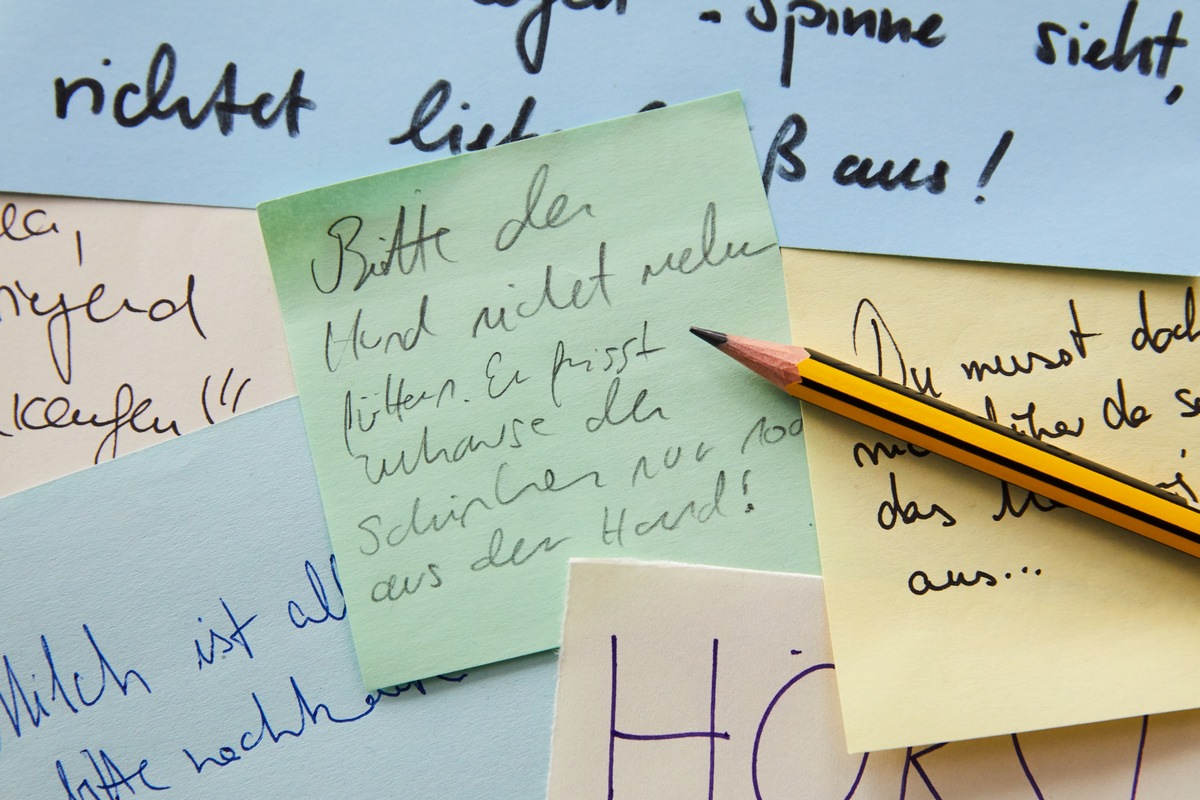 Spinne sieht,
richtet lieb
ß aus!
Bitte den
Hund nicht mehr
füttern. Er frisst
zuhause den
Schinken nur noch
aus der Hand!
Du musst doch
da
das
aus...
kaufen!!!
Milch ist all
bitte nachkaufen
HÖR